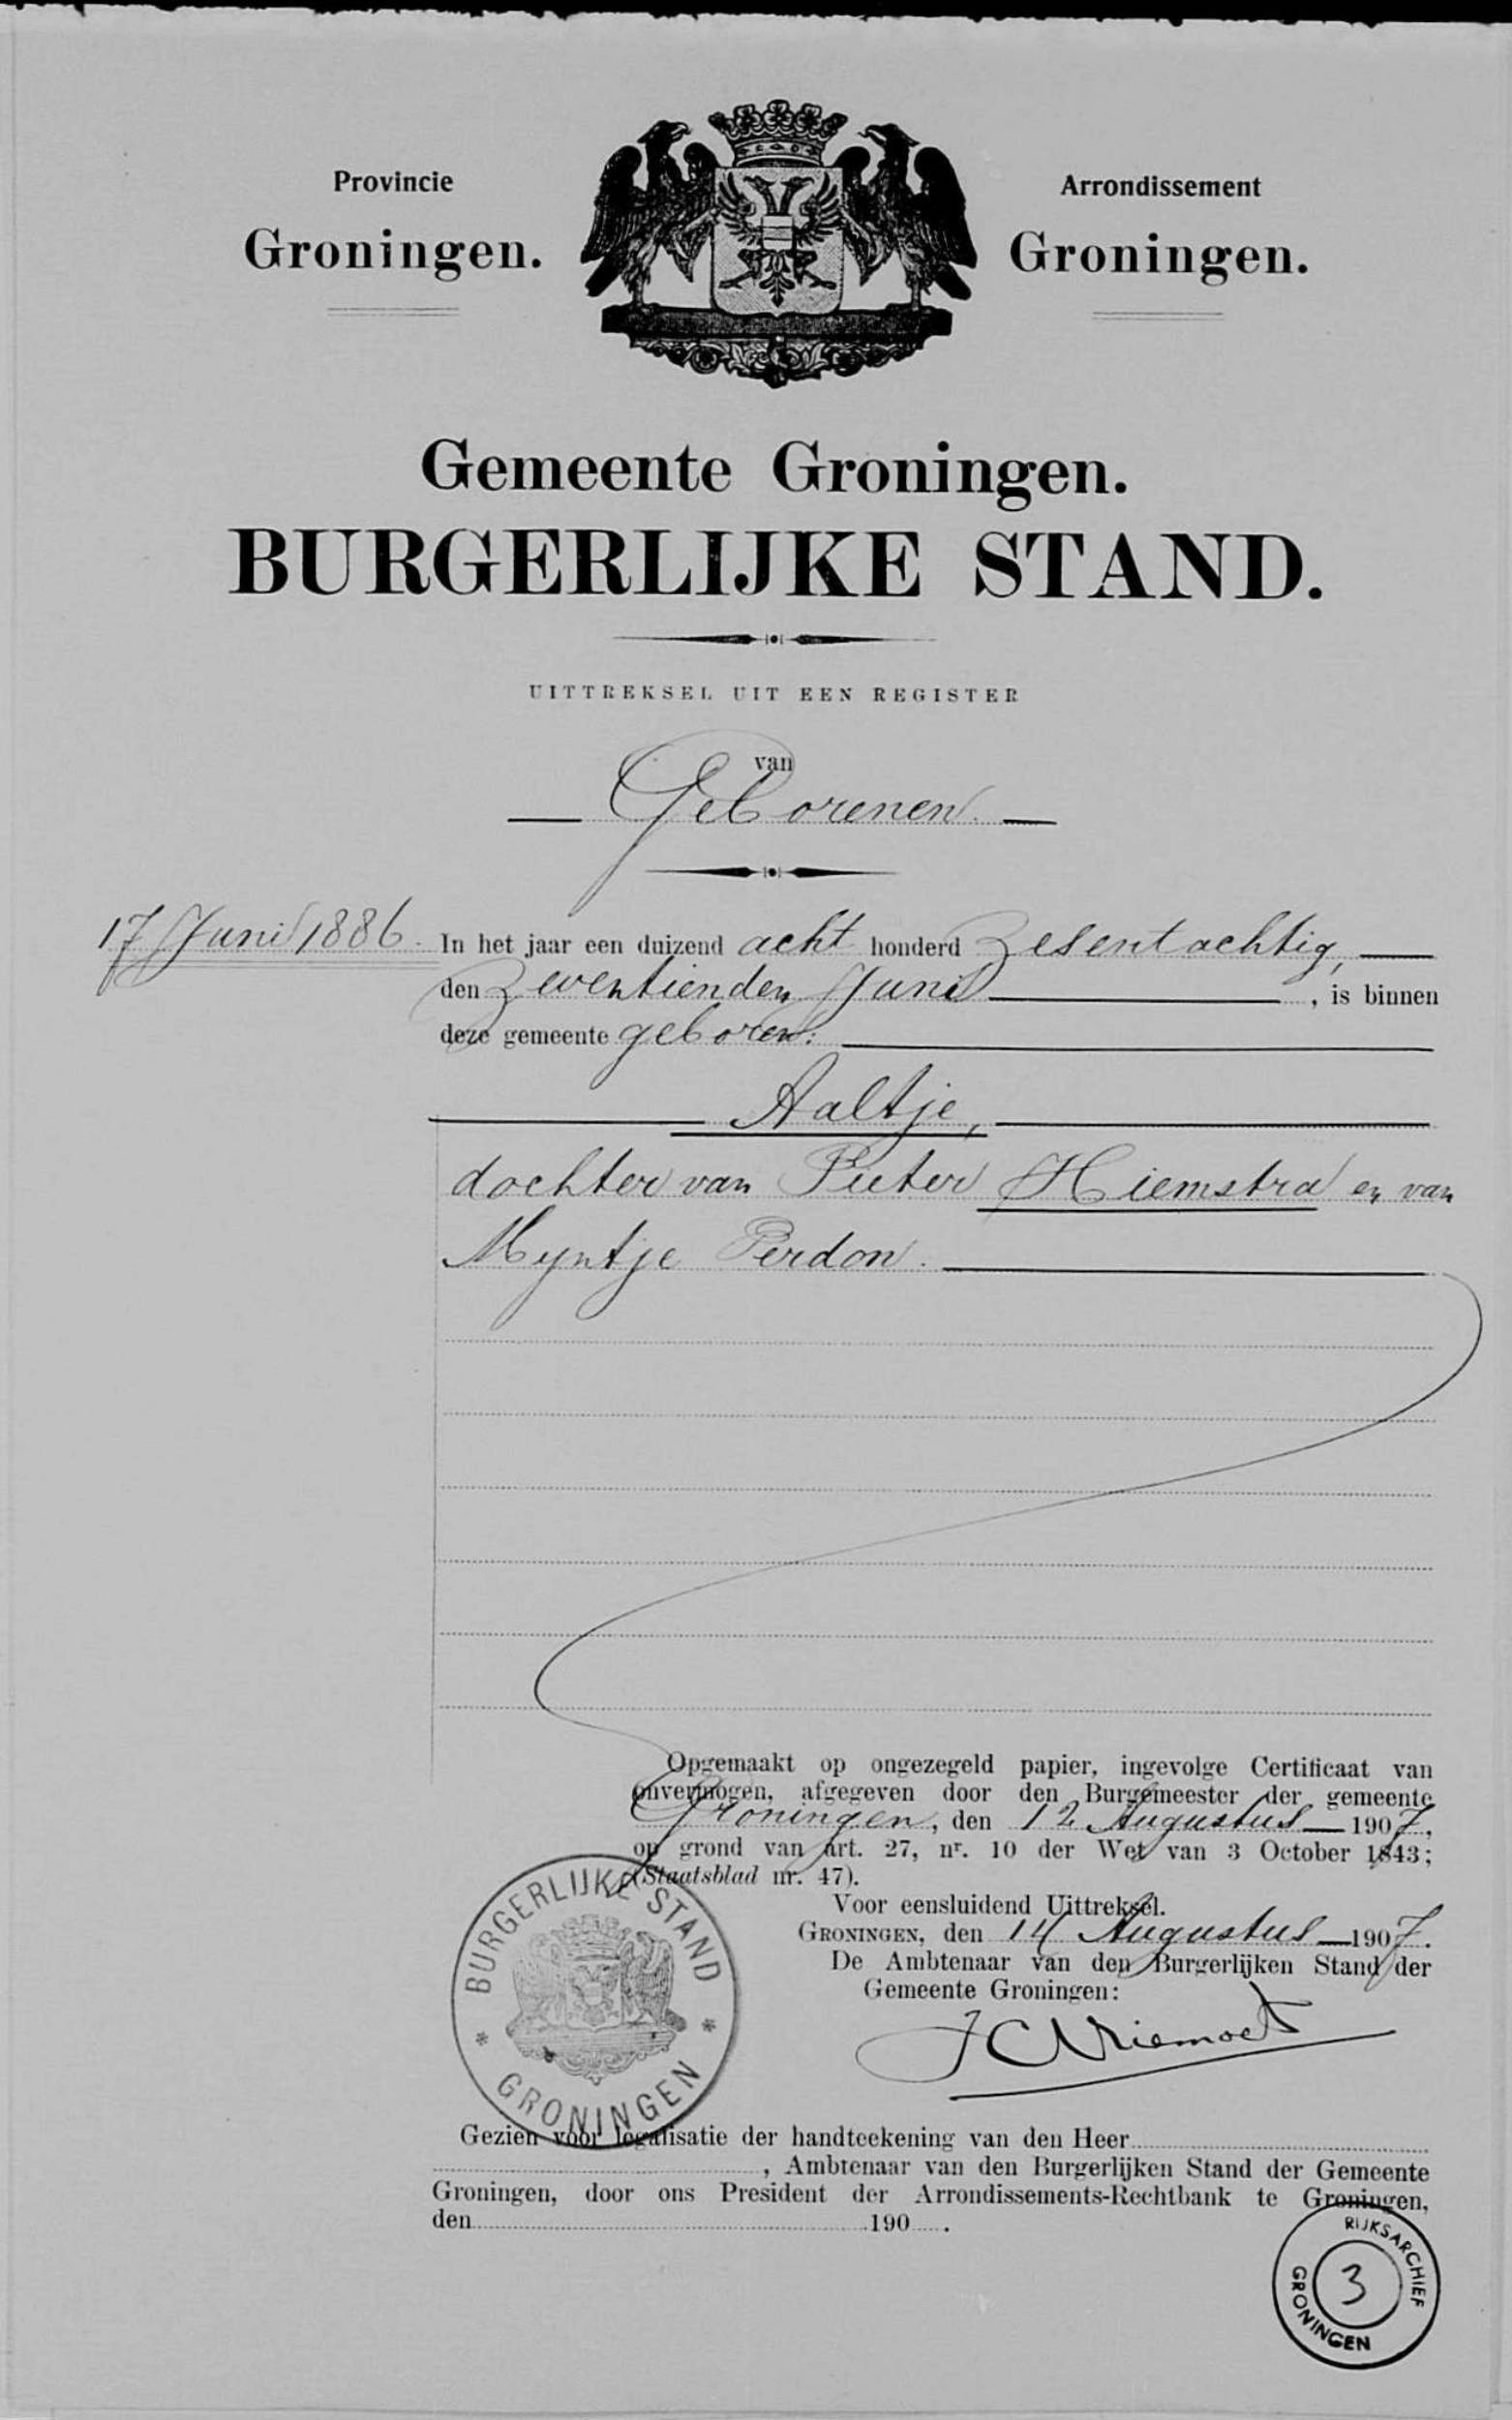 Provincie
Groningen.
Arrondissement
Groningen.
Gemeente Groningen.
BURGERLIJKE STAND.
UITTREKSEL UIT EEN REGISTER
van
Geborenen.
17 Juni 1886.
In het jaar een duizend acht honderd Zesentachtig,
den Zeventienden Juni, is binnen
deze gemeente geboren:
Aaltje,
dochter van Pieter Hiemstra en van
Myntje Perdon.
Opgemaakt op ongezegeld papier, ingevolge Certificaat van
onvermogen, afgegeven door den Burgemeester der gemeente
Groningen, den 12 Augustus 1907,
op grond van art. 27, nr. 10 der Wet van 3 October 1843;
(Staatsblad nr. 47).
Voor eensluidend Uittreksel.
GRONINGEN, den 14 Augustus 1907.
De Ambtenaar van den Burgerlijken Stand der
Gemeente Groningen:
BURGERLIJKE STAND
* GRONINGEN *
Gezien voor legalisatie der handteekening van den Heer
, Ambtenaar van den Burgerlijken Stand der Gemeente
Groningen, door ons President der Arrondissements-Rechtbank te Groningen,
den 190 .
RIJKSARCHIEF
3
GRONINGEN